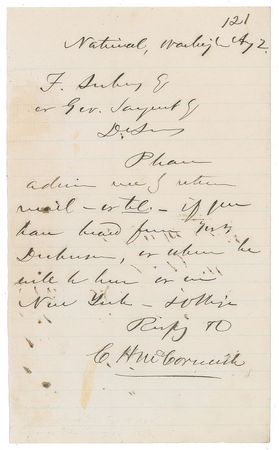 121
National, Washg Aug 2.
F. Esq
or Geo. Sargent Esq
Dr Sirs
Please
advise me by return
mail – or tel. – if you
have heard from Gov
Dickinson, or when he
will be here or in
New York – & oblige
Respy Yo
C. H. McCormick